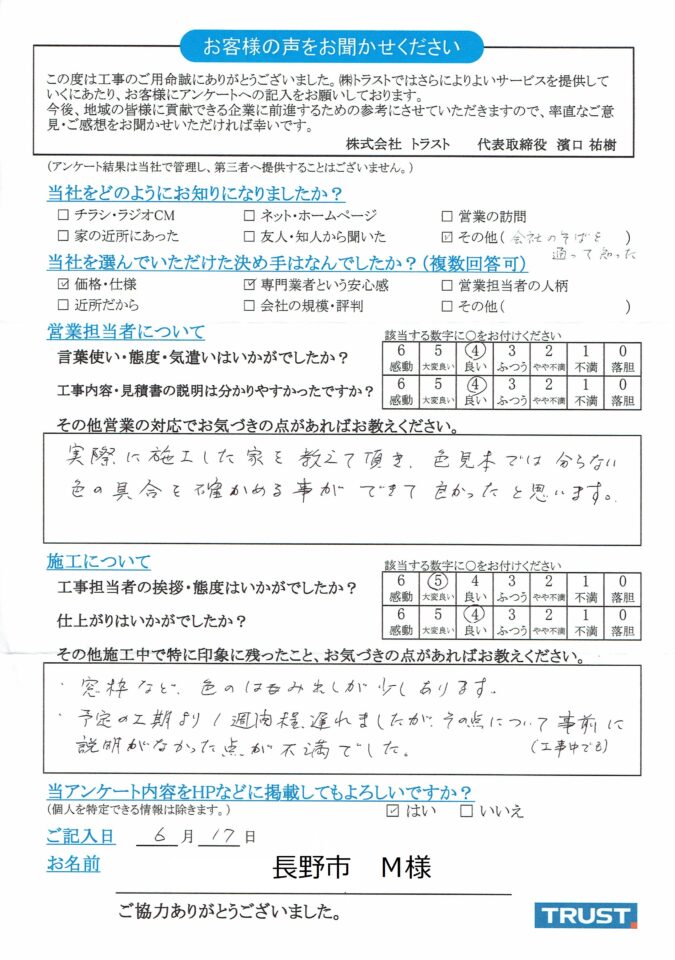 お客様の声をお聞かせください
この度は工事のご用命誠にありがとうございました。㈱トラストではさらによりよいサービスを提供して
いくにあたり、お客様にアンケートへの記入をお願いしております。
今後、地域の皆様に貢献できる企業に前進するための参考にさせていただきますので、率直なご意
見・ご感想をお聞かせいただければ幸いです。
株式会社 トラスト 代表取締役 濱口 祐樹
(アンケート結果は当社で管理し、第三者へ提供することはございません。)
当社をどのようにお知りになりましたか？
☐ チラシ・ラジオCM ☐ ネット・ホームページ ☐ 営業の訪問
☐ 家の近所にあった ☐ 友人・知人から聞いた ☑ その他( 会社のそばを )
通って知った
当社を選んでいただけた決め手はなんでしたか？(複数回答可)
☑ 価格・仕様 ☑ 専門業者という安心感 ☐ 営業担当者の人柄
☐ 近所だから ☐ 会社の規模・評判 ☐ その他( )
営業担当者について
該当する数字に○をお付けください
言葉使い・態度・気遣いはいかがでしたか？
6 5 ④ 3 2 1 0
感動 大変良い 良い ふつう やや不満 不満 落胆
工事内容・見積書の説明は分かりやすかったですか？
6 5 ④ 3 2 1 0
感動 大変良い 良い ふつう やや不満 不満 落胆
その他営業の対応でお気づきの点があればお教えください。
実際に施工した家を教えて頂き、色見本では分らない
色の具合を確かめる事ができて良かったと思います。
施工について
該当する数字に○をお付けください
工事担当者の挨拶・態度はいかがでしたか？
6 ⑤ 4 3 2 1 0
感動 大変良い 良い ふつう やや不満 不満 落胆
仕上がりはいかがでしたか？
6 5 ④ 3 2 1 0
感動 大変良い 良い ふつう やや不満 不満 落胆
その他施工中で特に印象に残ったこと、お気づきの点があればお教えください。
・窓枠など、色のはみ出しが少しあります。
・予定の工期より1週間程、遅れましたが、その点について事前に
(工事中でも)
説明がなかった点が不満でした。
当アンケート内容をHPなどに掲載してもよろしいですか？
(個人を特定できる情報は除きます。) ☑ はい ☐ いいえ
ご記入日 6 月 17 日
お名前 長野市 M様
ご協力ありがとうございました。
TRUST.